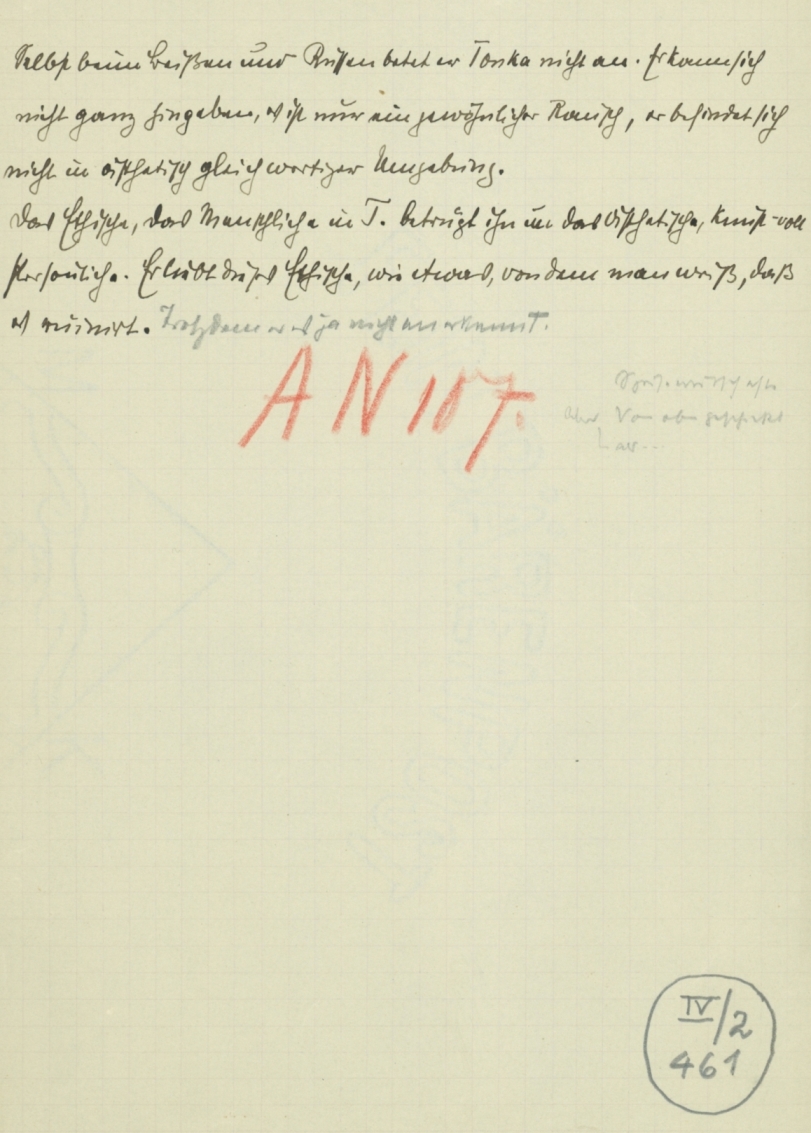 Selbst beim Beißen und Küssen betet er Tonka nicht an. Er kann sich
nicht ganz hingeben, es ist nur ein gewöhnlicher Rausch, er befindet sich
nicht in ästhetisch gleichwertiger Umgebung.
Das Ethische, das Menschliche in T. betrügt ihn um das Ästhetische, Kunst-voll
Persönliche. Er liebt dieses Ethische, wie etwas, von dem man weiß, daß
es ruinirt. Trotzdem er es ja nicht anerkennt.
AN 107.
aber von oben
IV/2
461